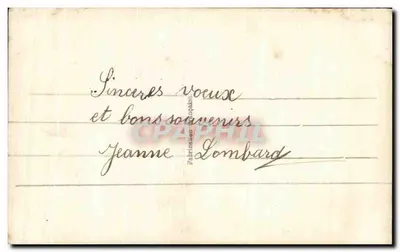 Sincères voeux
et bons souvenirs
CPAPHIL.COM
Jeanne Lombard